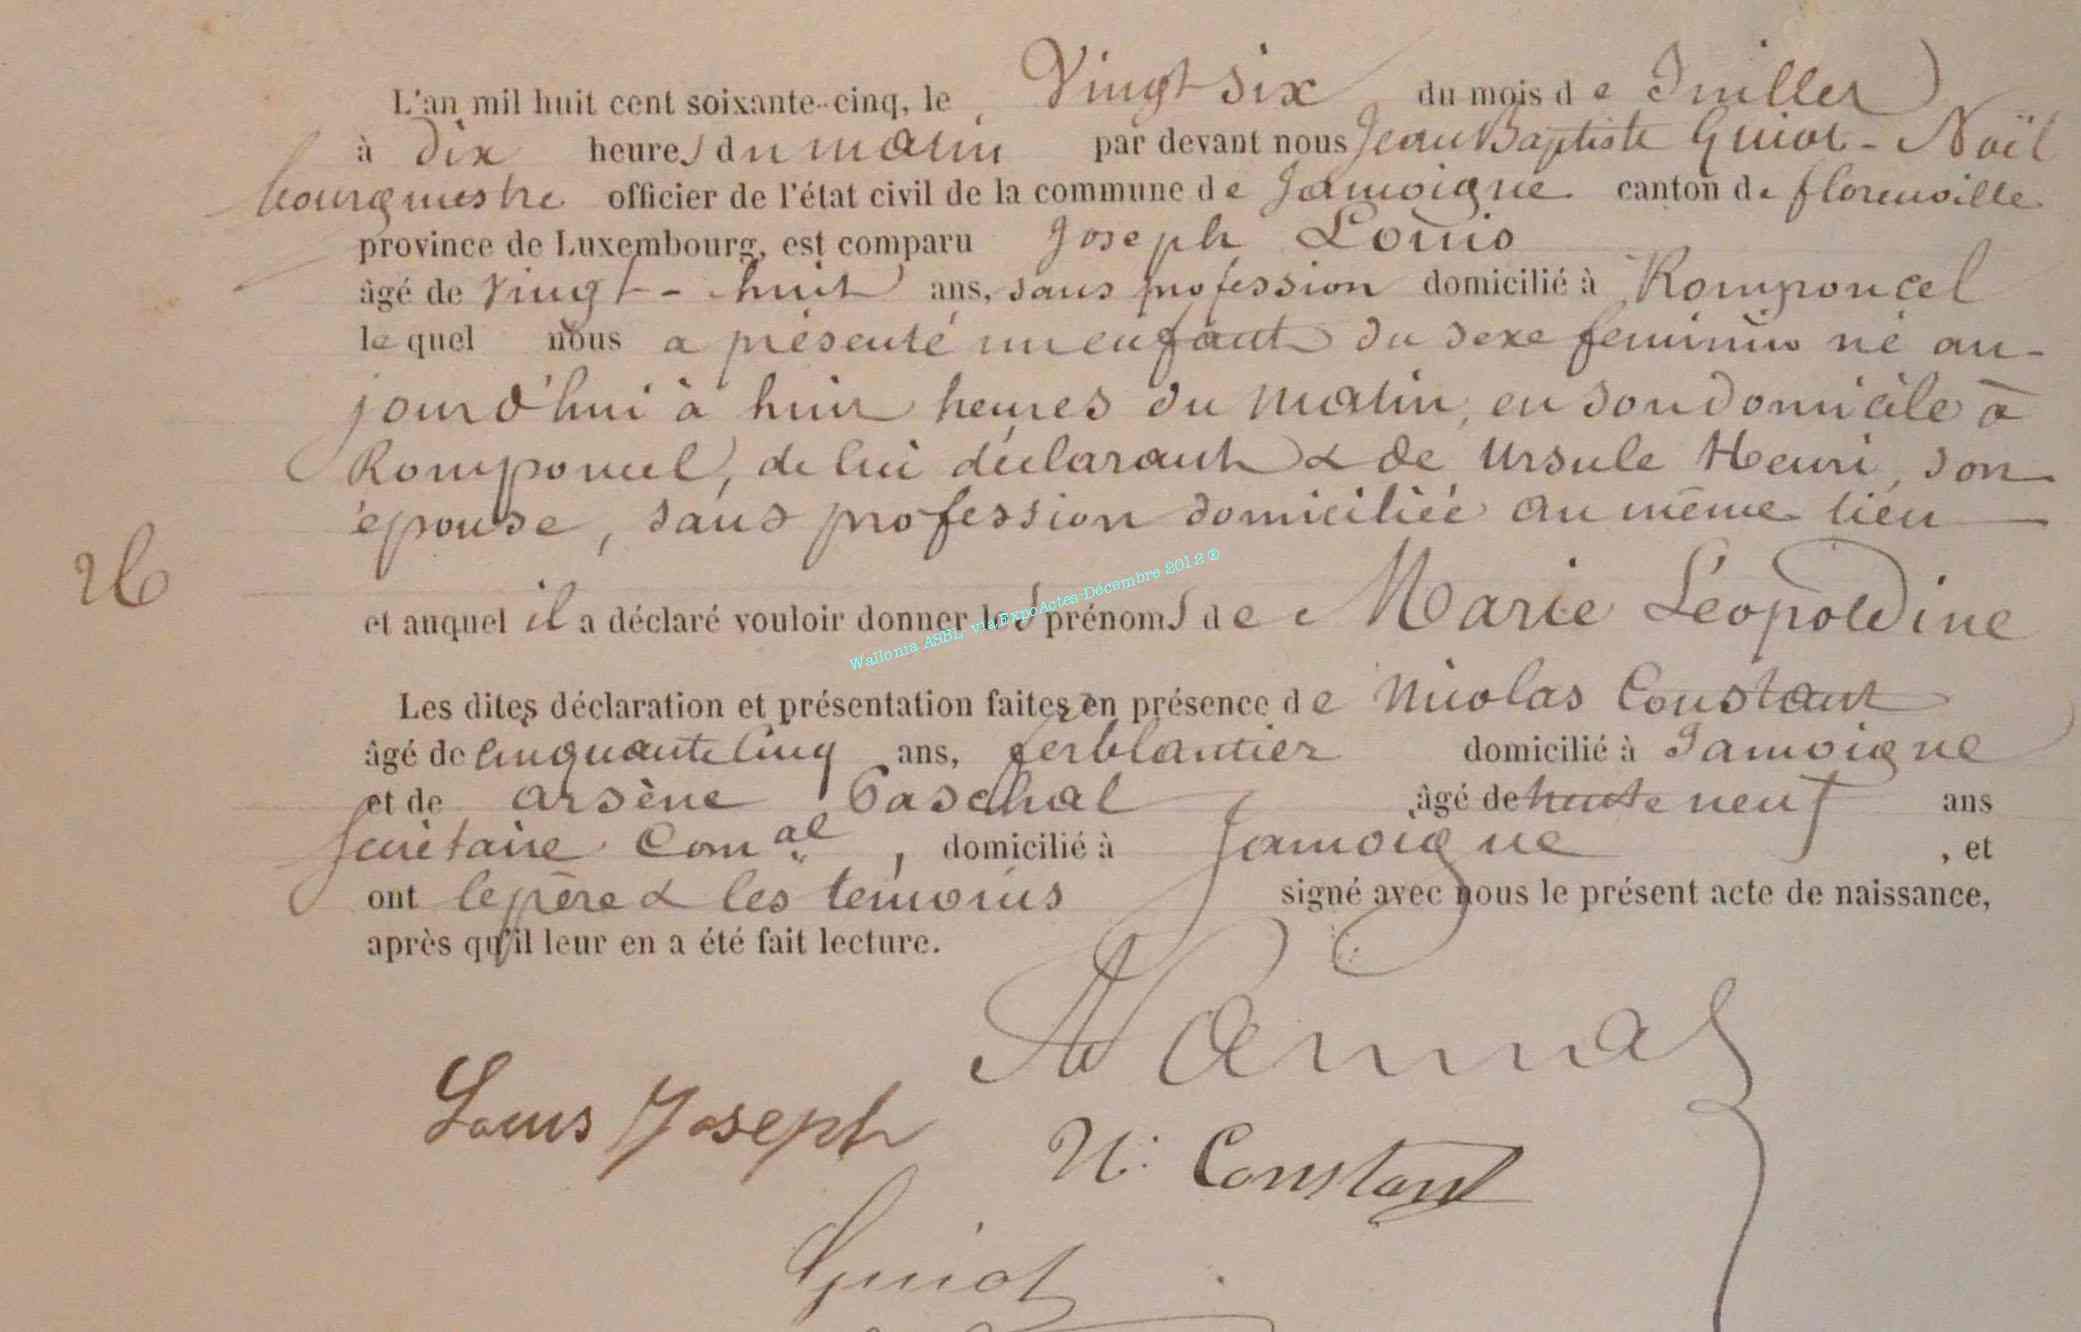 L'an mil huit cent soixante-cinq, le Vingt six du mois de Juillet
à dix heures du matin par devant nous Jean Baptiste Guiot-Noël
bourgmestre officier de l'état civil de la commune de Jamoigne canton de florenville
province de Luxembourg, est comparu Joseph Louis
âgé de vingt-huit ans, sans profession domicilié à Romponcel
lequel nous a présenté un enfant du sexe feminin né au-
jourd'hui à huit heures du matin, en son domicile à
Romponcel, de lui déclarant & de Ursule Henri, son
épouse, sans profession domiciliée au même lieu
26
et auquel il a déclaré vouloir donner les prénoms de Marie Léopoldine
Wallonia ASBL via ExpoActes-Décembre 2012 ®
Les dites déclaration et présentation faites en présence de Nicolas Constant
âgé de cinquante cinq ans, ferblantier domicilié à Jamoigne
et de arsène Paschal âgé de trente neuf ans
secrétaire Comal, domicilié à Jamoigne, et
ont le père & les témoins signé avec nous le présent acte de naissance,
après qu'il leur en a été fait lecture.
Louis Joseph
N. Constant
Guiot